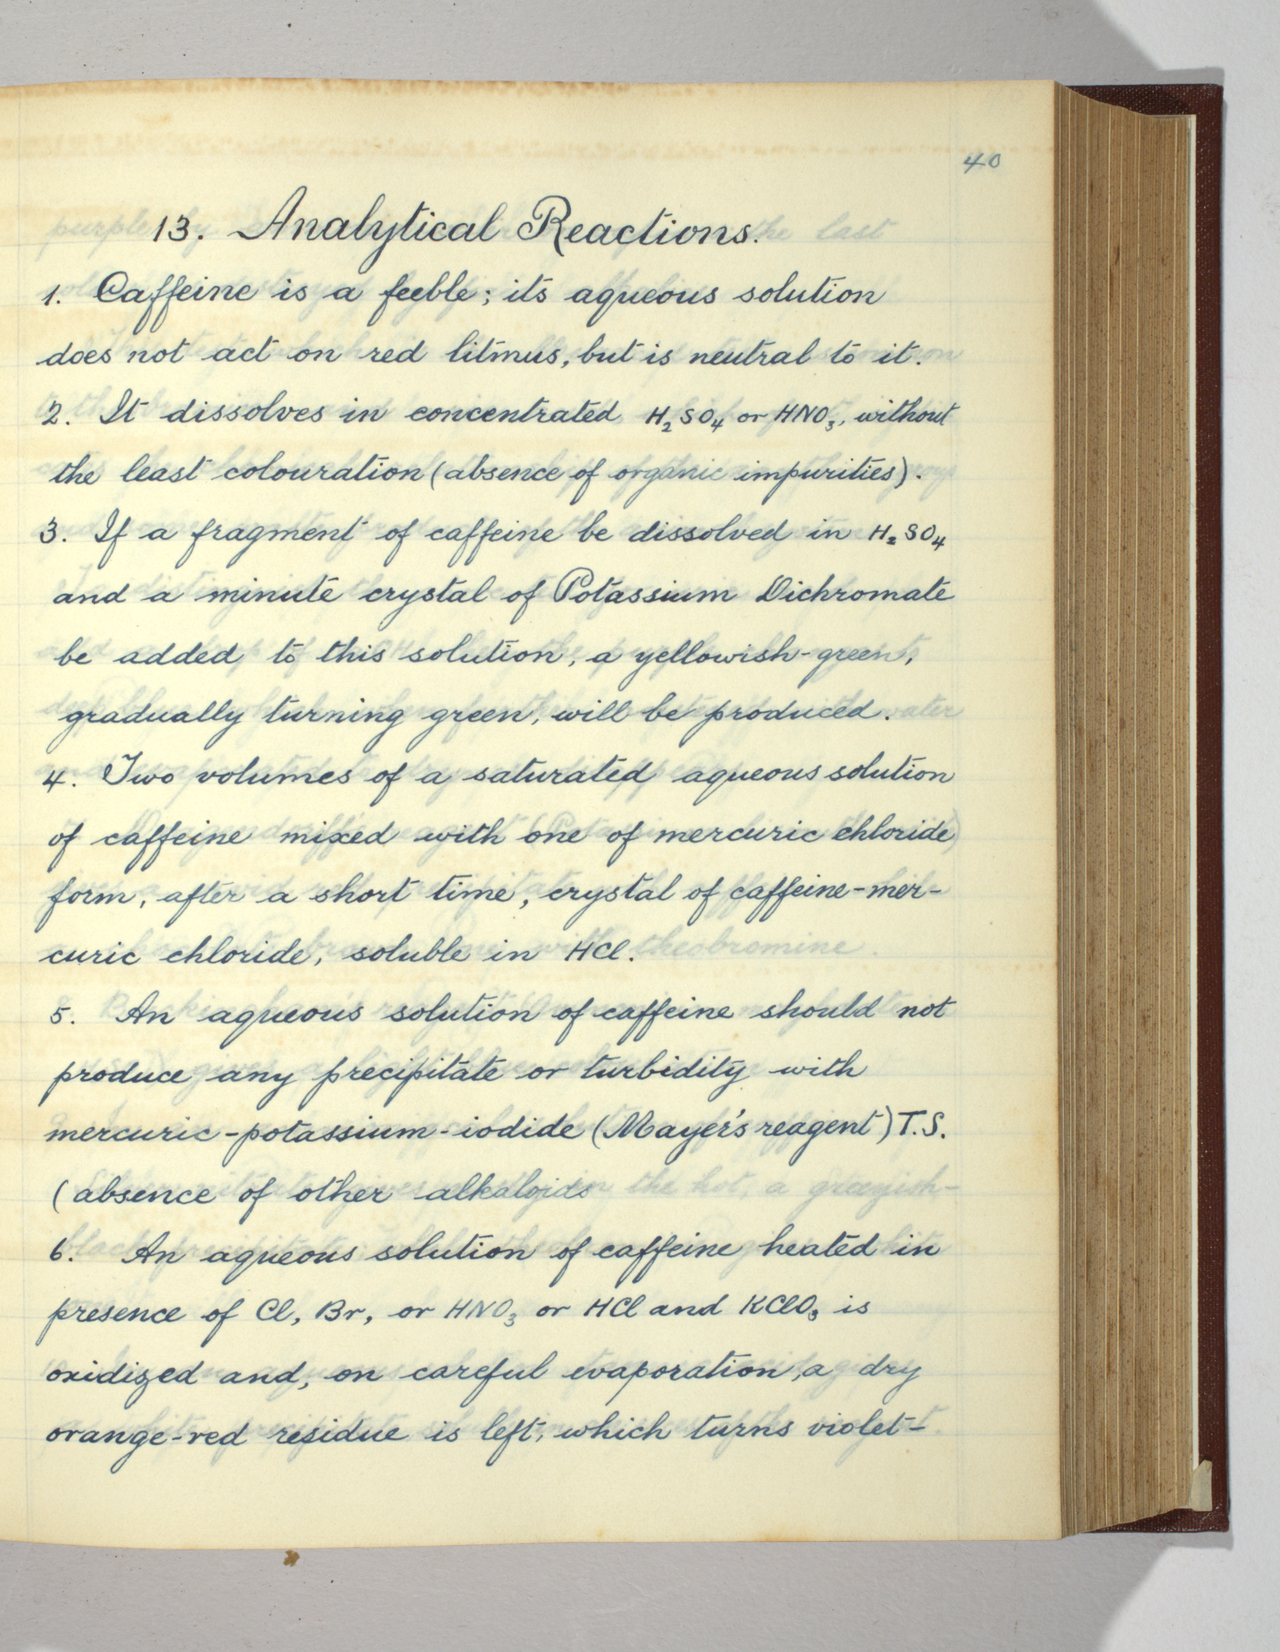 40
13. Analytical Reactions.
1. Caffeine is a feeble; its aqueous solution
does not act on red litmus, but is neutral to it.
2. It dissolves in concentrated H₂SO₄ or HNO₃, without
the least colouration (absence of organic impurities).
3. If a fragment of caffeine be dissolved in H₂SO₄
and a minute crystal of Potassium Dichromate
be added to this solution, a yellowish-green,
gradually turning green, will be produced.
4. Two volumes of a saturated aqueous solution
of caffeine mixed with one of mercuric chloride
form, after a short time, crystal of caffeine-mer-
curic chloride, soluble in HCl.
5. An aqueous solution of caffeine should not
produce any precipitate or turbidity with
mercuric-potassium-iodide (Mayer's reagent) T.S.
(absence of other alkaloids
6. An aqueous solution of caffeine heated in
presence of Cl, Br, or HNO₃ or HCl and KClO₃ is
oxidized and, on careful evaporation, a dry
orange-red residue is left, which turns violet-